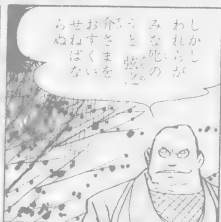 しかし
われわれが
みな死の
うと 弦之
介さまを
おすくい
せねばな
らぬ